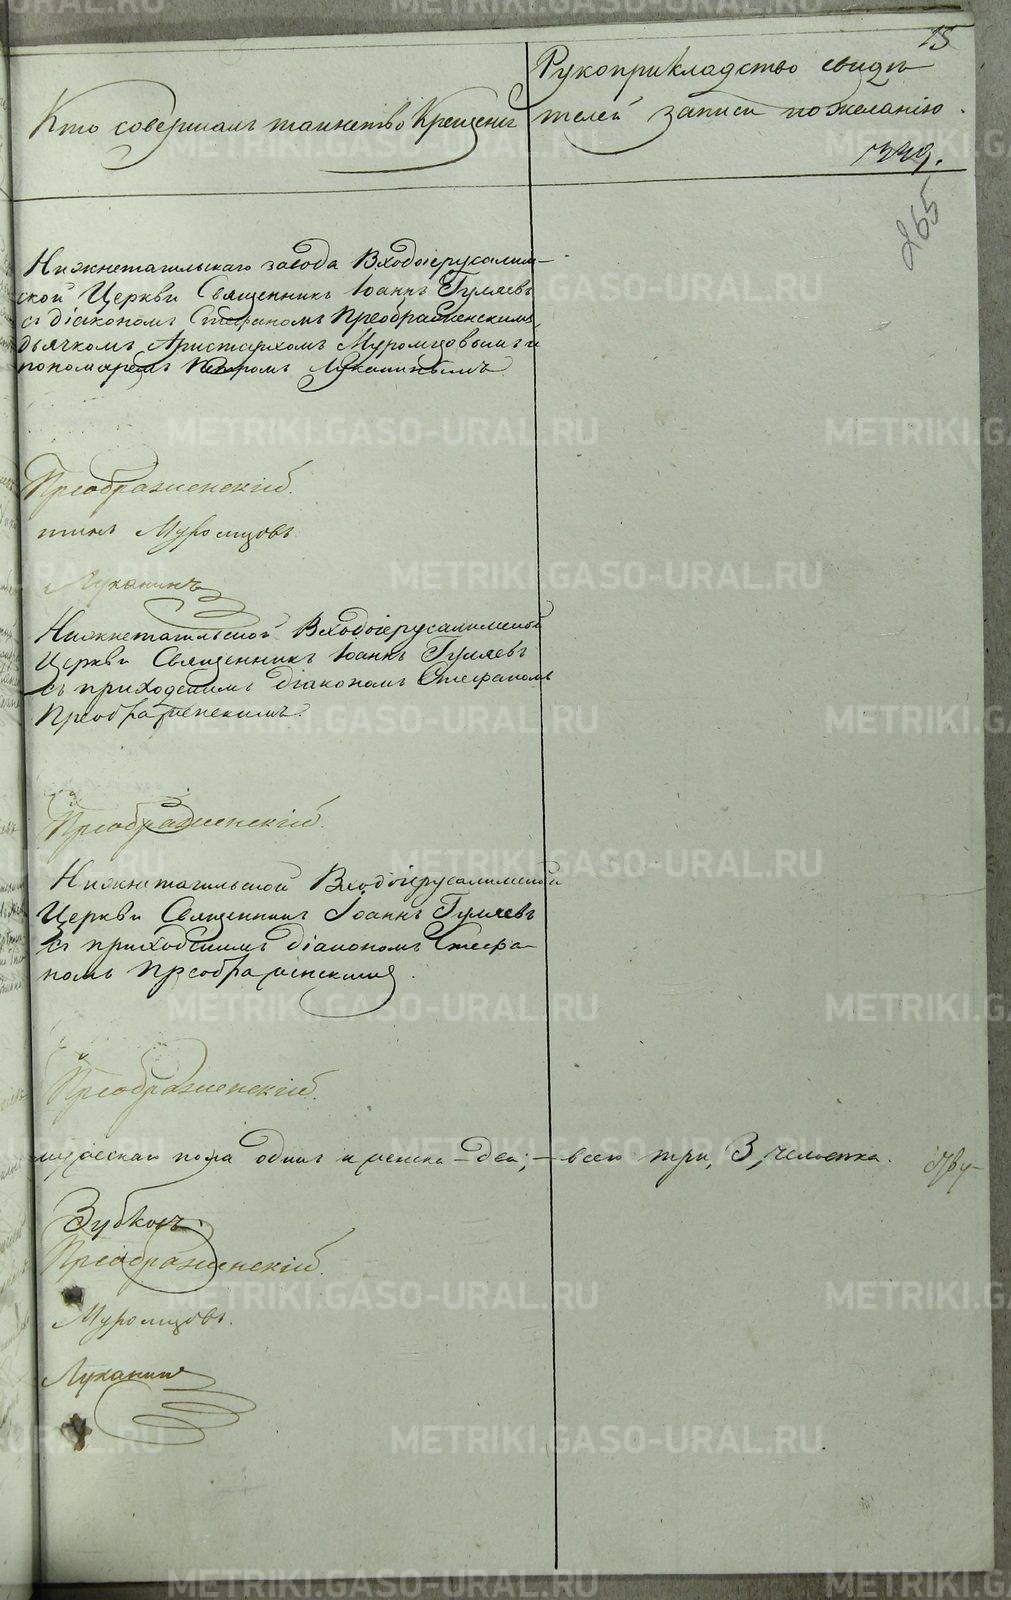 15
Кто совершалъ таинство Крещенія
Рукоприкладство свидѣ
телей записи по желанію.
339.
265
Нижнетагильскаго завода Входоіерусалим-
ской Церкви Священникъ Іоаннъ Гуляевъ
съ діакономъ Стефаномъ Преображенскимъ,
дьячкомъ Аристархомъ Муромцовымъ и
пономаремъ Петромъ Луканинымъ
Преображенскій.
Муромцовъ
Луканинъ
Нижнетагильской Входоіерусалимской
Церкви Священникъ Іоаннъ Гуляевъ
съ приходскимъ діакономъ Стефаномъ
Преображенскимъ.
Преображенскій.
Нижнетагильской Входоіерусалимской
Церкви Священникъ Іоаннъ Гуляевъ
съ приходскимъ діакономъ Стефа-
номъ Преображенскимъ.
Преображенскій.
мужескаго пола одинъ и женска - два; - всего три, 3, человека.
Зубковъ.
Преображенскій.
Муромцовъ.
Луканинъ
METRIKI.GASO-URAL.RU